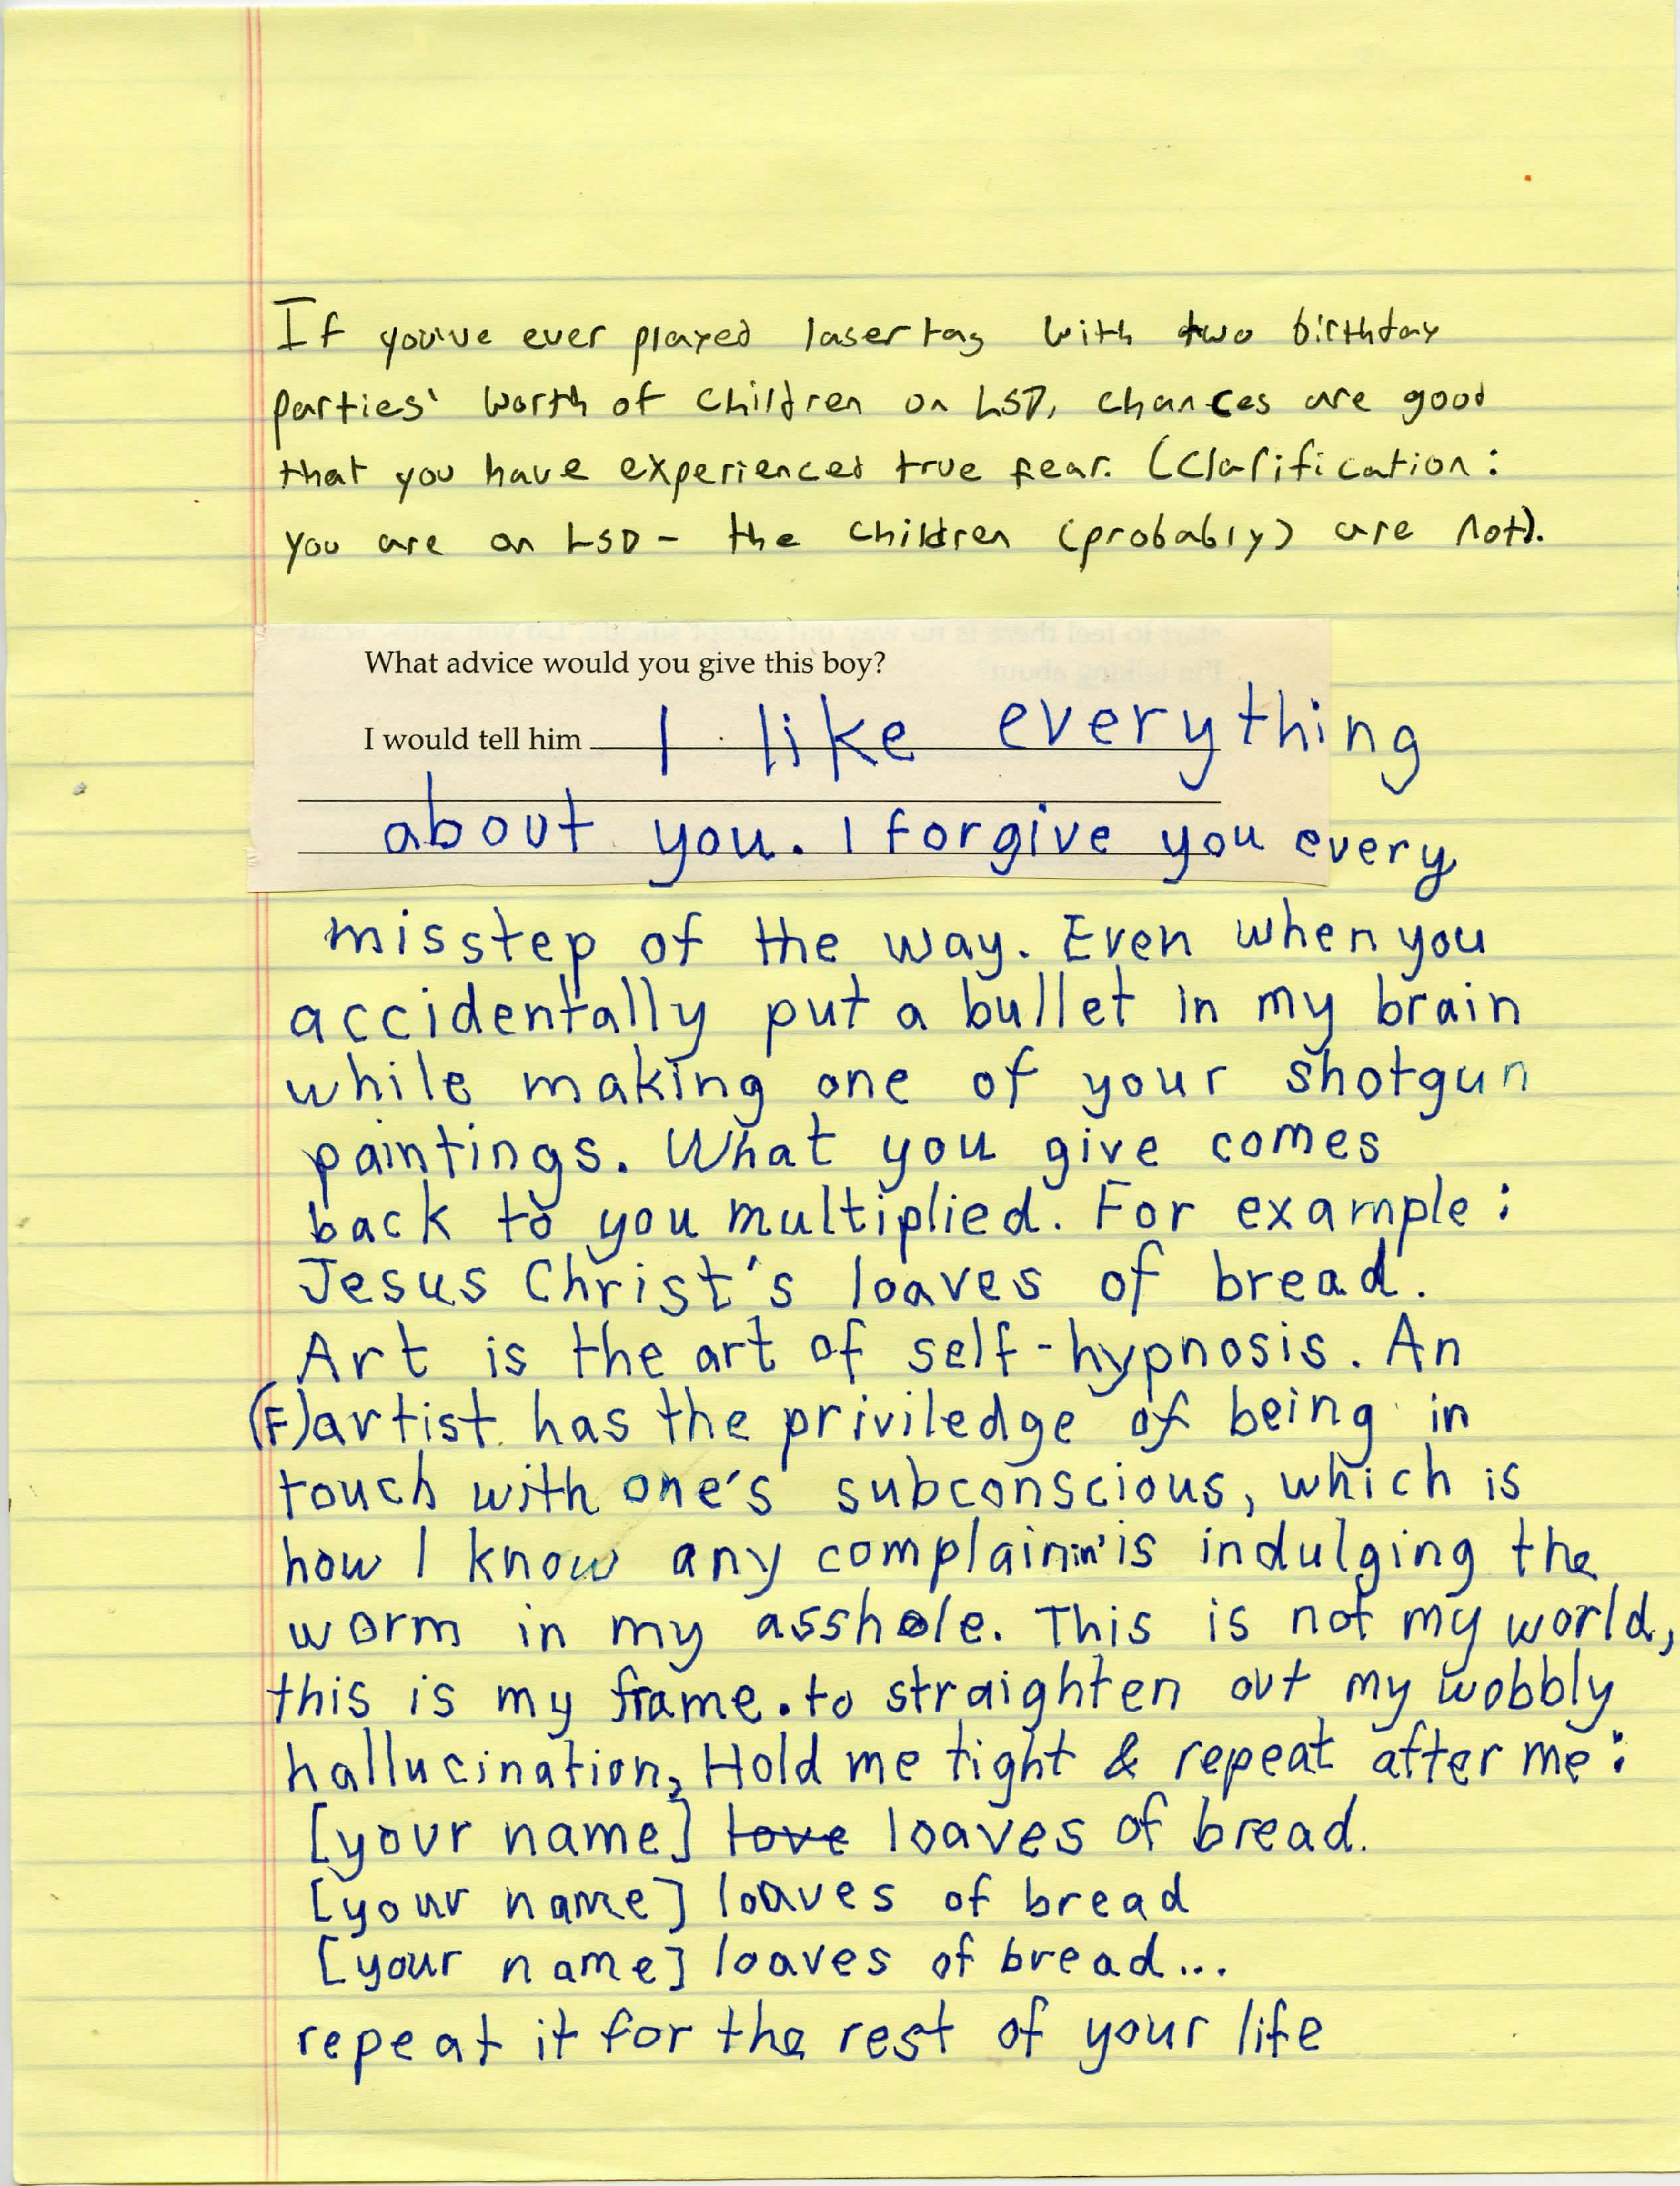 If you've ever played laser tag with two birthday
parties' worth of children on LSD, chances are good
that you have experienced true fear. (Clarification:
you are on LSD - the children (probably) are not).
What advice would you give this boy?
I would tell him I like everything
about you. I forgive you every
misstep of the way. Even when you
accidentally put a bullet in my brain
while making one of your shotgun
paintings. What you give comes
back to you multiplied. For example:
Jesus Christ's loaves of bread.
Art is the art of self-hypnosis. An
(F)artist has the priviledge of being in
touch with one's subconscious, which is
how I know any complainin' is indulging the
worm in my asshole. This is not my world,
this is my frame. to straighten out my wobbly
hallucination, Hold me tight & repeat after me:
[your name] love loaves of bread.
[your name] loaves of bread
[your name] loaves of bread...
repeat it for the rest of your life